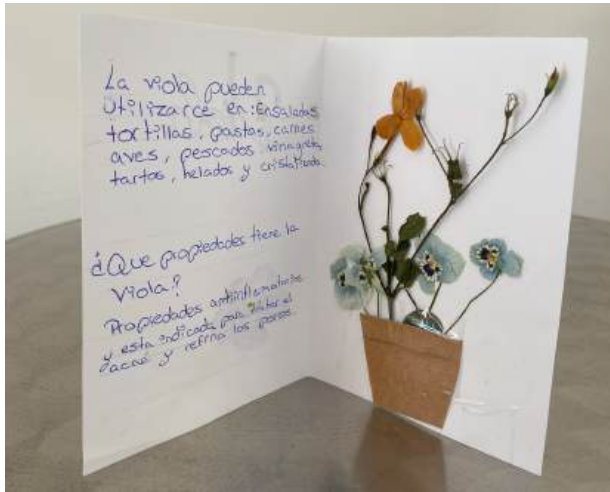 La viola pueden
Utilizarce en: Ensaladas
tortillas, pastas, carnes
aves, pescados vinagreta,
tartas, helados y cristalizada.
¿Que propiedades tiene la
Viola?
Propiedades antiinflamatorias
y esta indicada para tratar el
acné y refina los poros.